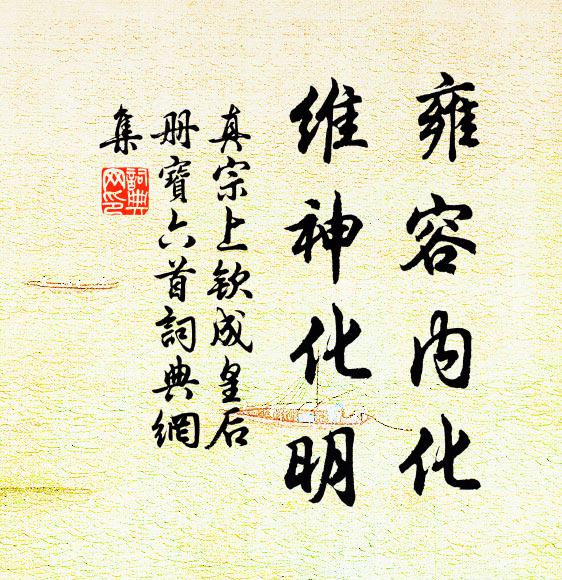 雍容内化
維神化明
真宗上欽成皇后
册寶六首詞典網
集
詞典
网印